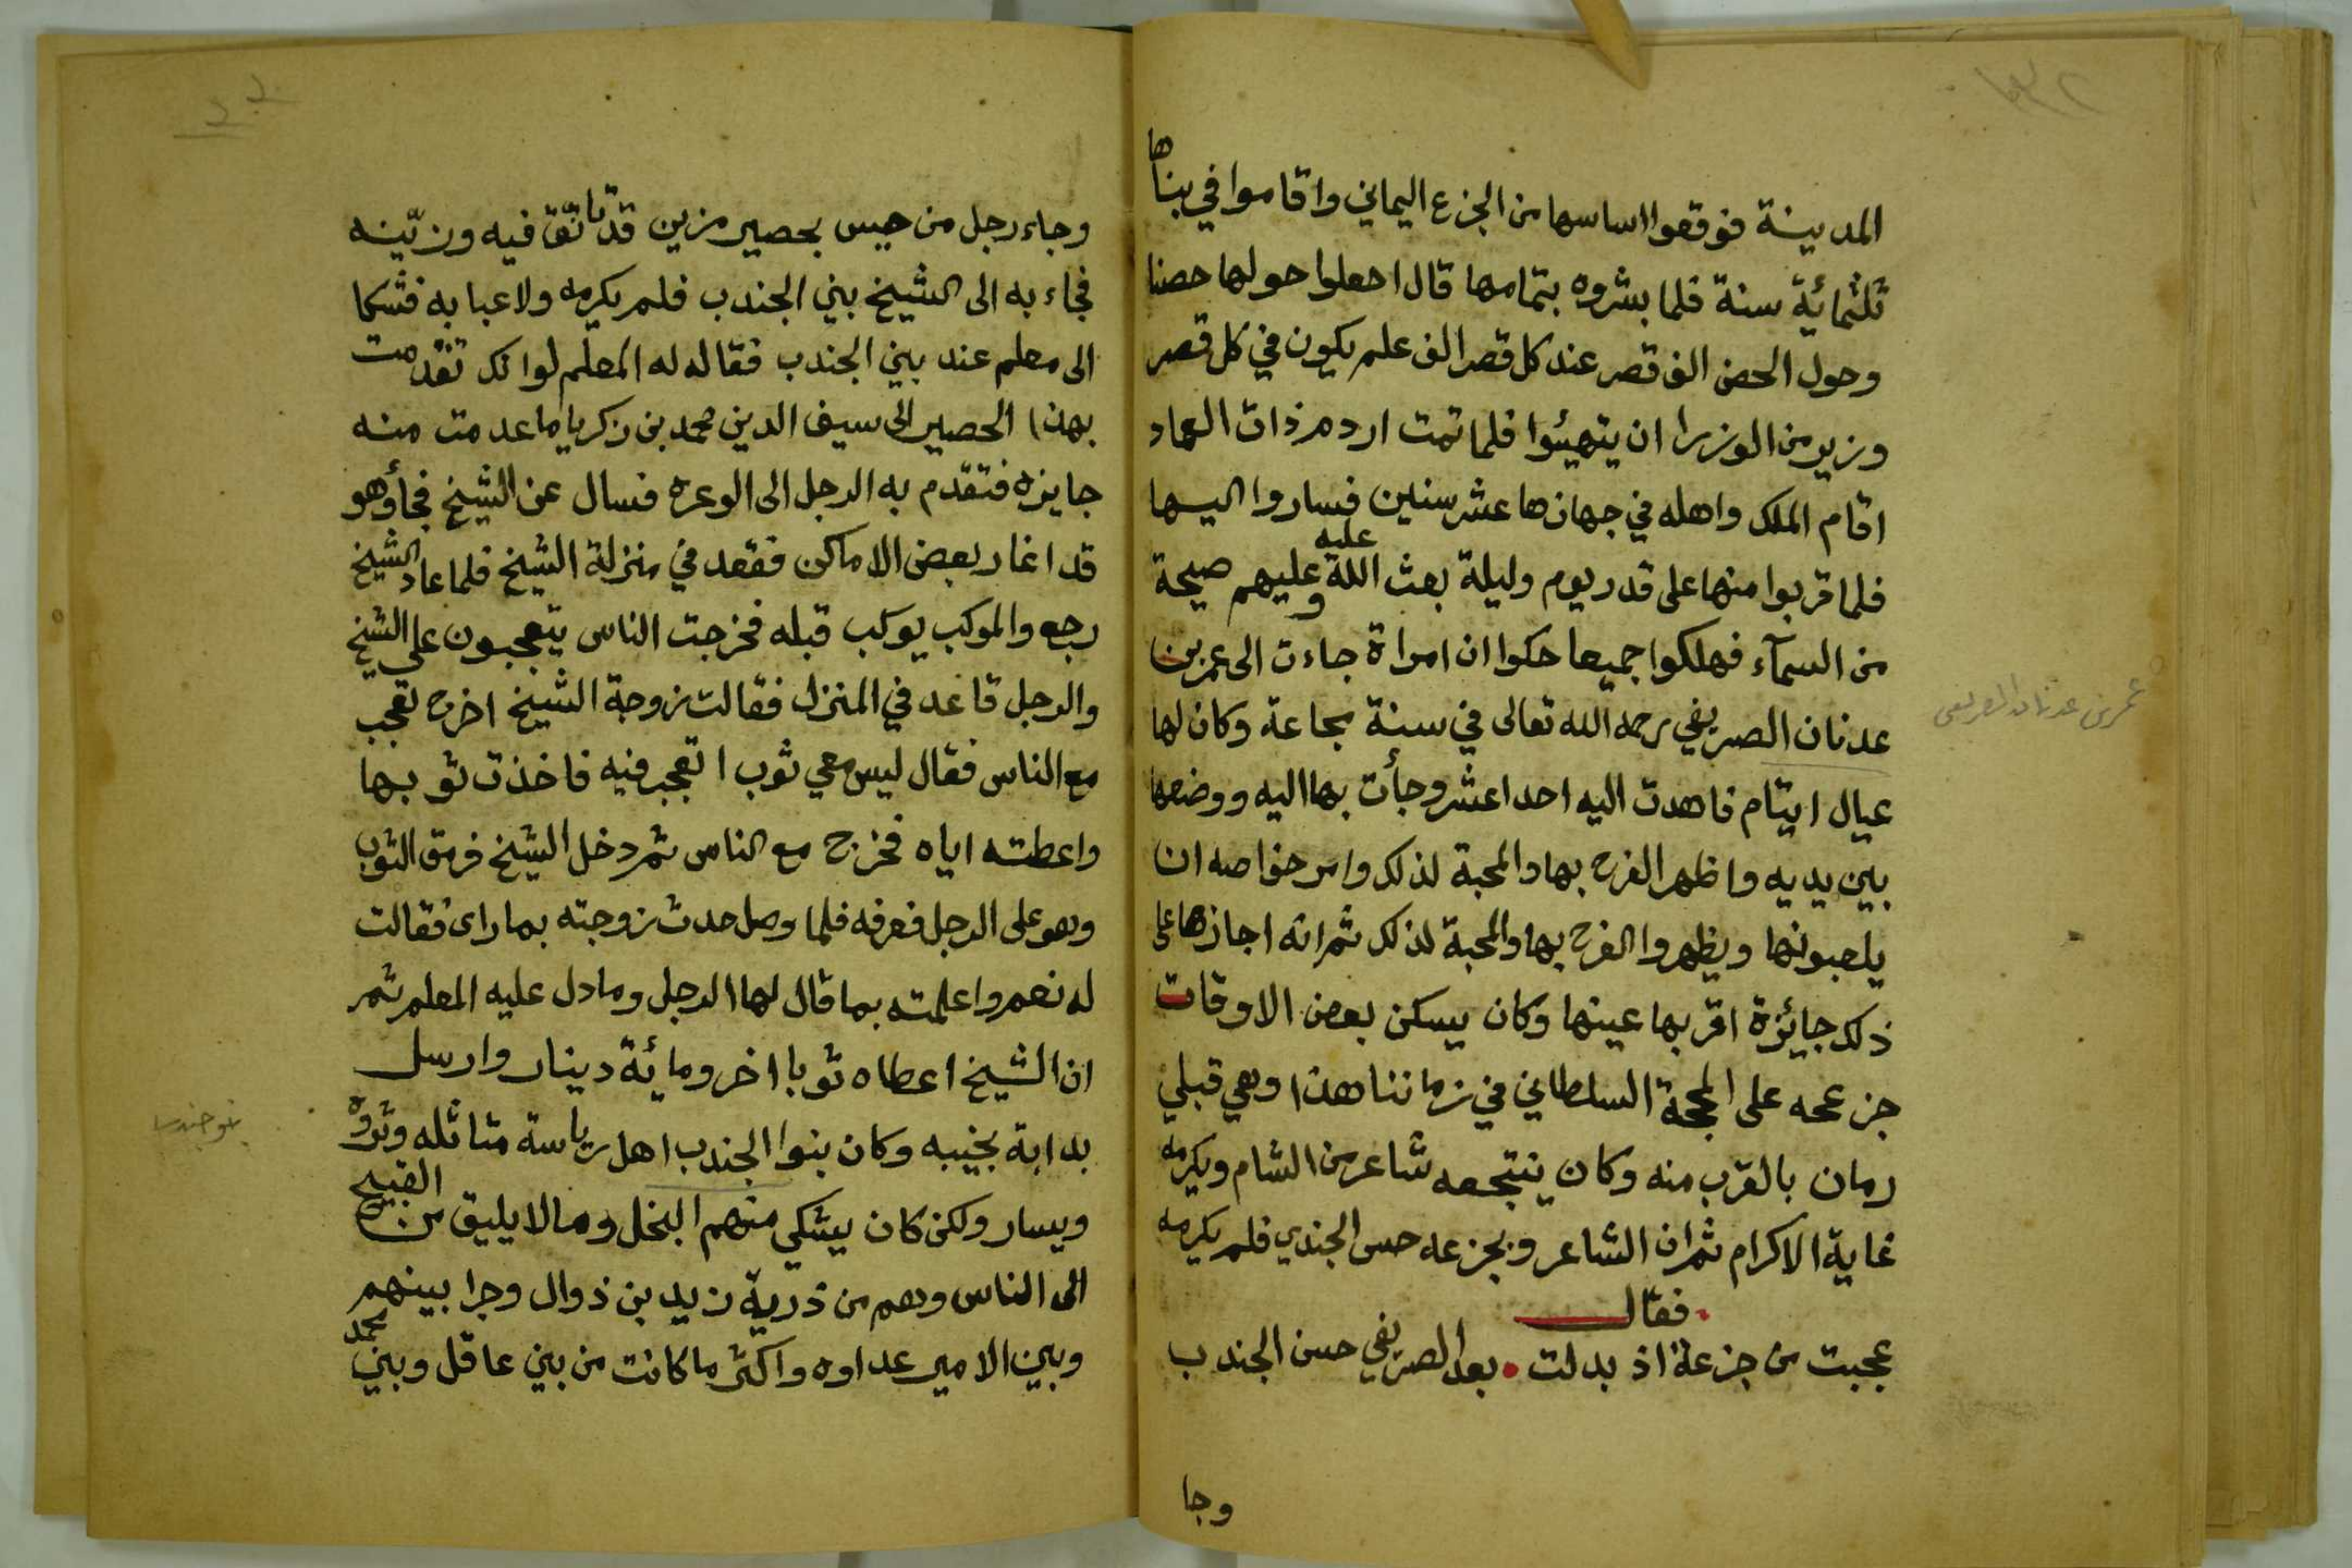 المدينة فوقعوا اساسها من الجزع اليماني واقاموا في بناها
ثلثمائية سنة فلما بشروه بتمامها قال اجعلوا حولها حصنا
وحول الحصن الف قصر عند كل قصر الف علم يكون في كل قصر
وزير من الوزرا ان يتهيئوا فلما تمت اردم ذات العماد
اقام الملك واهله في جهازها عشر سنين فساروا اليها
فلما قربوا منها على قدر يوم وليلة بعث الله عليه وعليهم صيحة
من السمآء فهلكوا جميعا حكوا ان امراة جاءت الى عمر بن
عدنان الصريفي رحمه الله تعالى في سنة مجاعة وكان لها
عيال ايتام فاهدت اليه احدا عشر وجأت بها اليه ووضعها
بين يديه واظهر الفرح بها والمحبة لذلك وامر خواصه ان
يلعبونها ويظهروا الفرح بها والمحبة لذلك ثم انه اجازها على
ذلك جايئزة اقر بها عينها وكان يسكن بعض الاوقات
جزعحه على المحجة السلطاني في زماننا هذا وهي قبلي
رمان بالقرب منه وكان ينتجعه شاعر من الشام ويكرمه
غاية الاكرام ثم ان الشاعر وبجزعه حس الجندي فلم يكرمه
فقال
عجبت من جزعة اذ بدلت • بعد الصريفي حسن الجندب
وجا
عمر بن عدنان الصريفي
وجاء رجل من حيس بحصير مزين قد تانّق فيه وزيّنه
فجاء به الى الشيخ بني الجندب فلم يكرمه ولاعبا به فشكا
الى معلم عند بني الجندب فقال له المعلم لوانك تقدمت
بهذا الحصير الى سيف الدين محمد بن زكريا ما عدمت منه
جايزه فتقدم به الرجل الى الوعره فسال عن الشيخ فجأ وهو
قد اغار بعض الاماكن فقعد في منزلة الشيخ فلما عاد الشيخ
رجع والموكب يوكب قبله فخرجت الناس يتعجبون على الشيخ
والرجل قاعد في المنزل فقالت زوجة الشيخ اخرج تعجب
مع الناس فقال ليس معي ثوب اتعجب فيه فاخذت ثوبها
واعطته اياه فخرج مع الناس ثم دخل الشيخ فرمق الثوب
وهو على الرجل فعرفه فلما وصل حدث زوجته بما راى فقالت
له نعم واعلمته بما قال لها الرجل وما دل عليه المعلم ثم
ان الشيخ اعطاه ثوبا اخر ومائة دينار وارسل
بدابة نجيبه وكان بنوا الجندب اهل رياسة متاثله وثروة
ويسار ولكن كان يشكي منهم البخل وما لا يليق من القبيح
الى الناس وهم من ذرية زيد بن ذوال وجرا بينهم
وبين الامير عداوه واكثر ما كانت من بني عاقل وبني محمد
بنو جندب